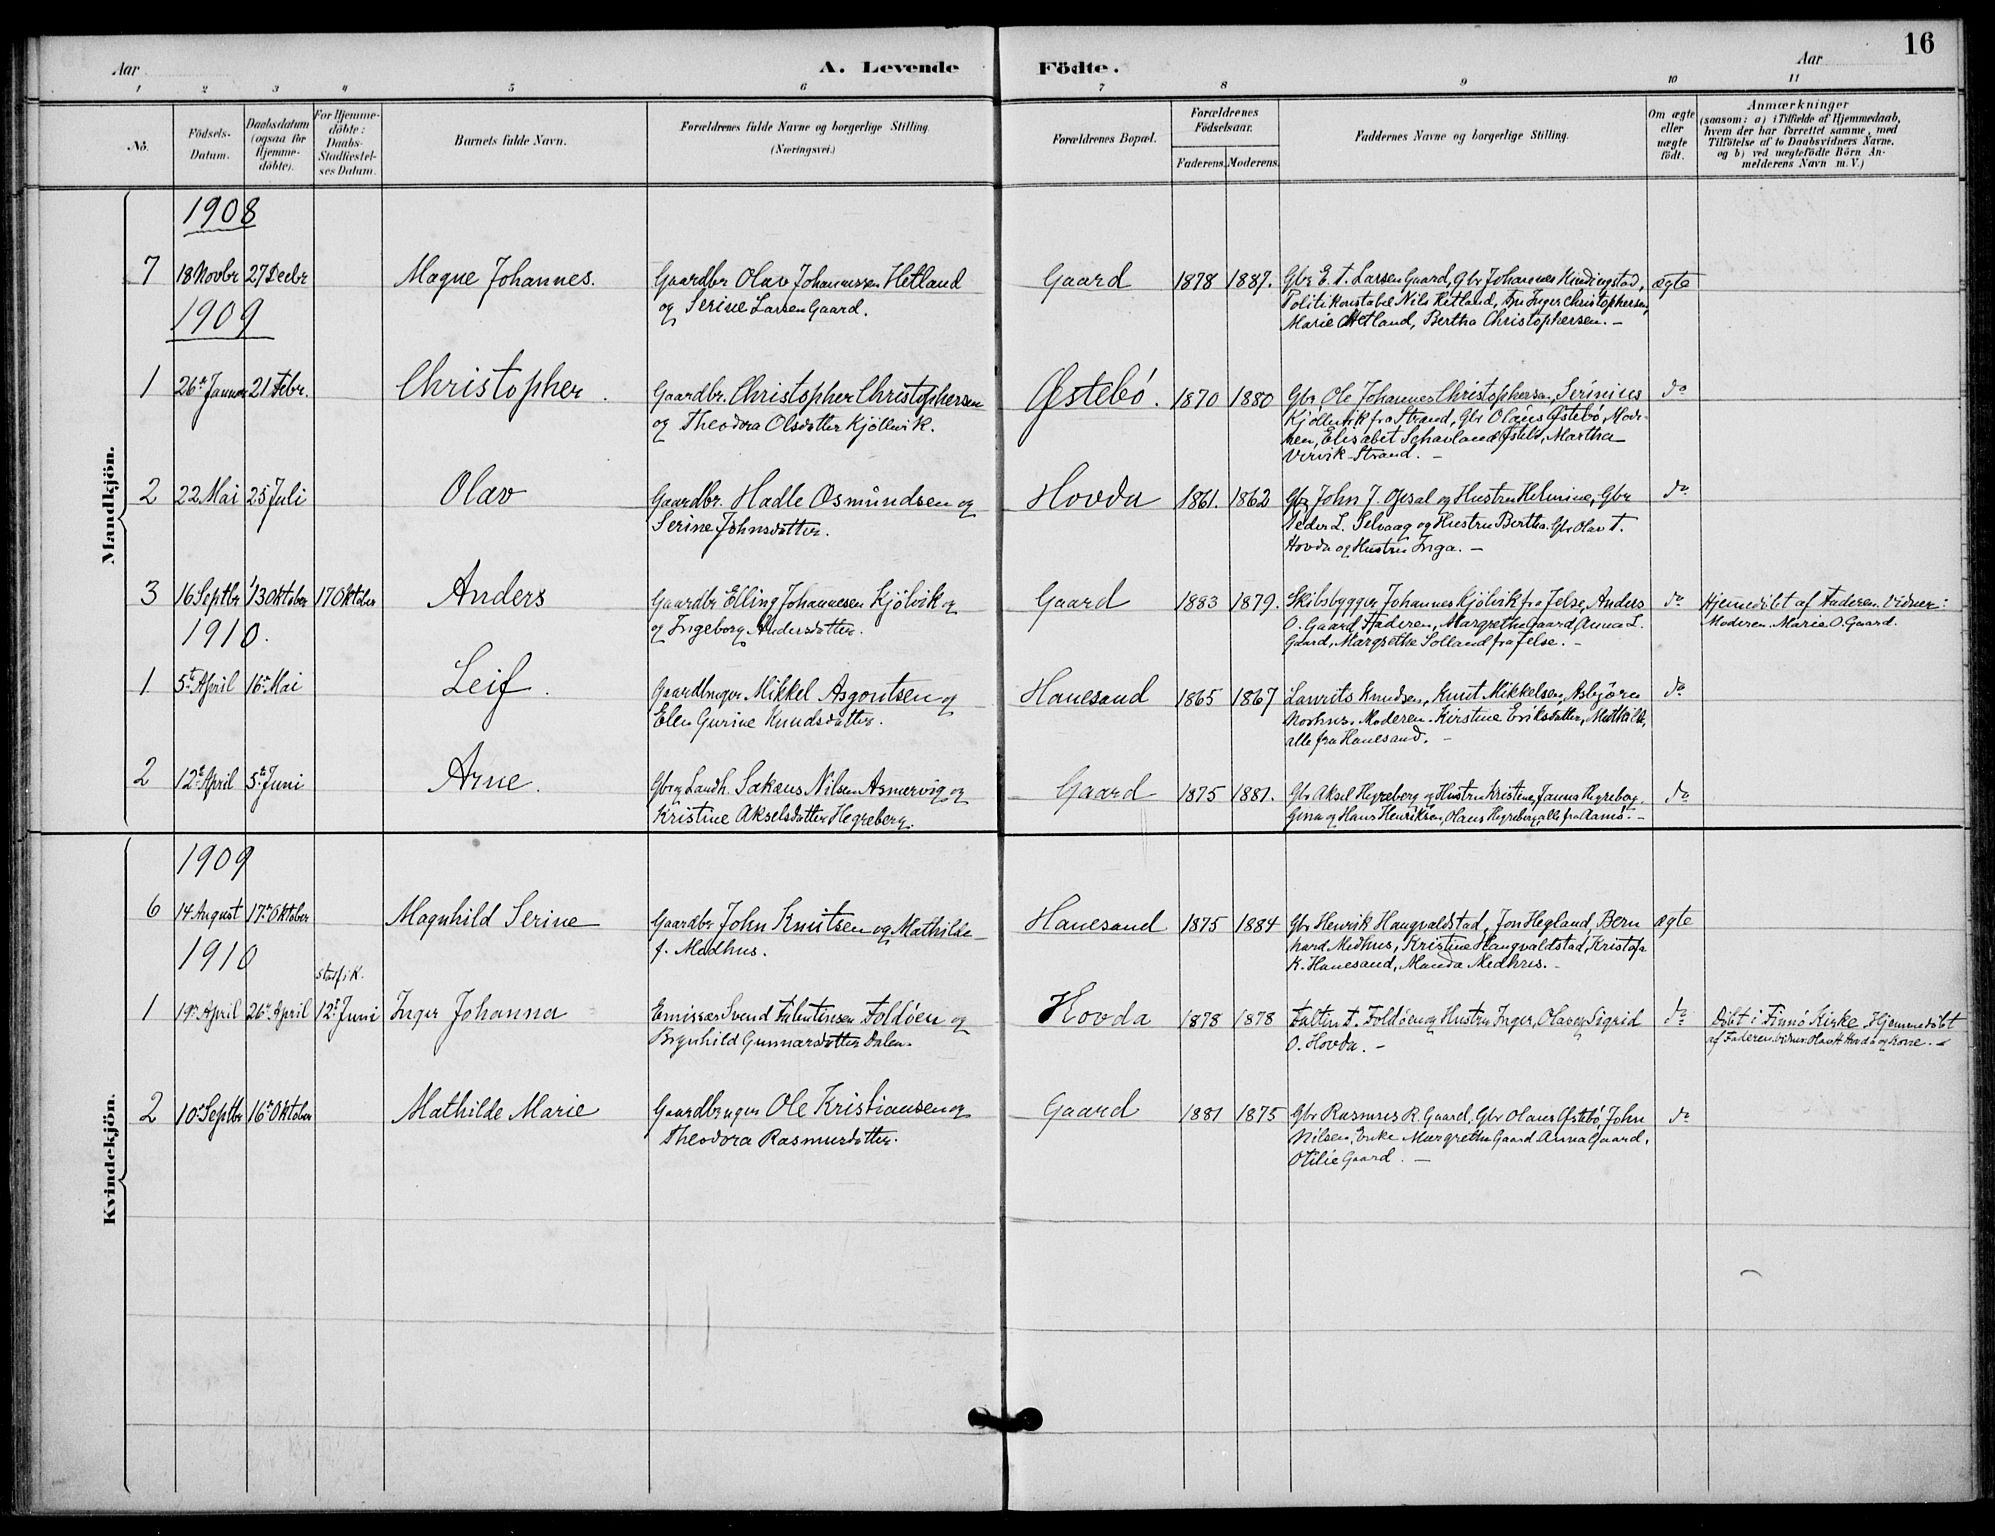 16
Aar
A. Levende Födte.
Aar
1 2 3 4 5 6 7 8 9 10 11
No.
Födsels-
Datum.
Daabsdatum
(ogsaa for
Hjemme-
döbte).
For Hjemme-
döbte:
Daabs-
Stadfæstel-
ses Datum.
Barnets fulde Navn.
Forældrenes fulde Navne og borgerlige Stilling.
(Næringsvei.)
Forældrenes Bopæl.
Forældrenes
Födselsaar.
Faderens. Moderens.
Faddernes Navne og borgerlige Stilling.
Om ægte
eller
uægte
födt.
Anmærkninger
(saasom: a) i Tilfælde af Hjemmedaab,
hvem der har forrettet samme, med
Tilföielse af to Daabsvidners Navne,
og b) ved uægtefödte Börn An-
melderens Navn m. V.)
Mandkjön.
1908
7 18 Novbr 27 Decbr Magne Johannes.
Gaardbr Olav Johannessen Hetland
og Serine Larsen Gaard.
Gaard 1878 1887.
Gbr E. T. Larsen Gaard, Gbr Johannes Kindingstad,
Politikonstabel Nils Hetland, Fru Inger Christophersen,
Marie Hetland, Bertha Christophersen. –
ægte
1909
1 26de Januar 21 Febr. Christopher.
Gaardbr. Christopher Christophersen
og Theodora Olsdatter Kjöllevik.
Østebö. 1870 1880
Gbr Ole Johannes Christophersen, Serinius
Kjöllevik fra Strand, Gbr Olaus Østebö, Mode-
ren, Elisabet Østebö, Martha
Strand. –
do
2 22 Mai 25 Juli Olav
Gaardbr. Hadle Osmundsen og
Serine Johnsdatter.
Hovda 1861. 1862
Gbr John J. Opsal og Hustru Helmine, Gbr
Peder L. Selvaag og Hustru Bertha. Gbr Olav T.
Hovda og Hustru Inga. –
do
3 16 Septbr 13 Oktober 17 Oktober Anders
Gaardbr Elling Johannesen Kjölvik og
og Ingeborg Andersdatter.
Gaard 1883 1879.
Skibsbygger Johannes Kjölvik fra Jelse, Anders
O. Gaard, Faderen, Margretha Gaard, Anna L.
Gaard, Margrethe Solland fra Jelse. –
do
Hjemedöbt af Faderen. Vidner:
Moderen. Marie O. Gaard.
1910.
1 5te April 16de Mai Leif.
Gaardbruger Mikkel Asgoutsen og
Elen Gurine Knudsdatter.
Hanesand 1865 1867
Laurits Knudsen, Knut Mikkelsen, Asbjörn
Norhus. Moderen. Kirstine Eriksdatter, Mathilde,
alle fra Hanesand. –
do
2 12te April 5te Juni Arne.
Gbr og Landh. Sakæus Nilsen Asmervig og
Kristine Akselsdatter Hegreberg.
Gaard 1875 1881.
Gbr Aksel Hegreberg og Hustru Kristine, Hegreberg.
Gina og Hans Henriksen, Olaus Hegreberg, alle fra –
do
Kvindekjön.
1909
6 14 August 17de Oktober Magnhild Serine
Gaardbr John Knutsen og Mathilde
f. Medhus.
Hanesand 1875 1884
Gbr Henrik Haugvaldstad, Jon Hegland, Bern
hard Medhus, Kristine Haugvaldstad, Kristofa
K. Hanesand, Manda Medhus. –
ægte
1910
1 19de April 26de April stadf. i K. 12te Juni Inger Johanna
Emissær Svend Falentinsen Foldöen og
Brynhild Gunnarsdatter Dalen.
Hovda 1878 1878
Faltin T. Foldöen og Hustru Inger, Olav og Sigrid
O. Hovda. –
do
Döbt i Finnö Kirke. Hjemmedöbt
af Faderen. Vidner: Olav Hovda og Kone. –
2 10de Septbr 16de Oktober Mathilde Marie
Gaardbruger Ole Kristiansen og
Theodora Rasmusdatter.
Gaard 1881 1875
Gbr Rasmus R. Gaard, Gbr Olaus Østebö, John
Nilsen, Enke Margretha Gaard Anna Gaard,
Otilie Gaard. –
do